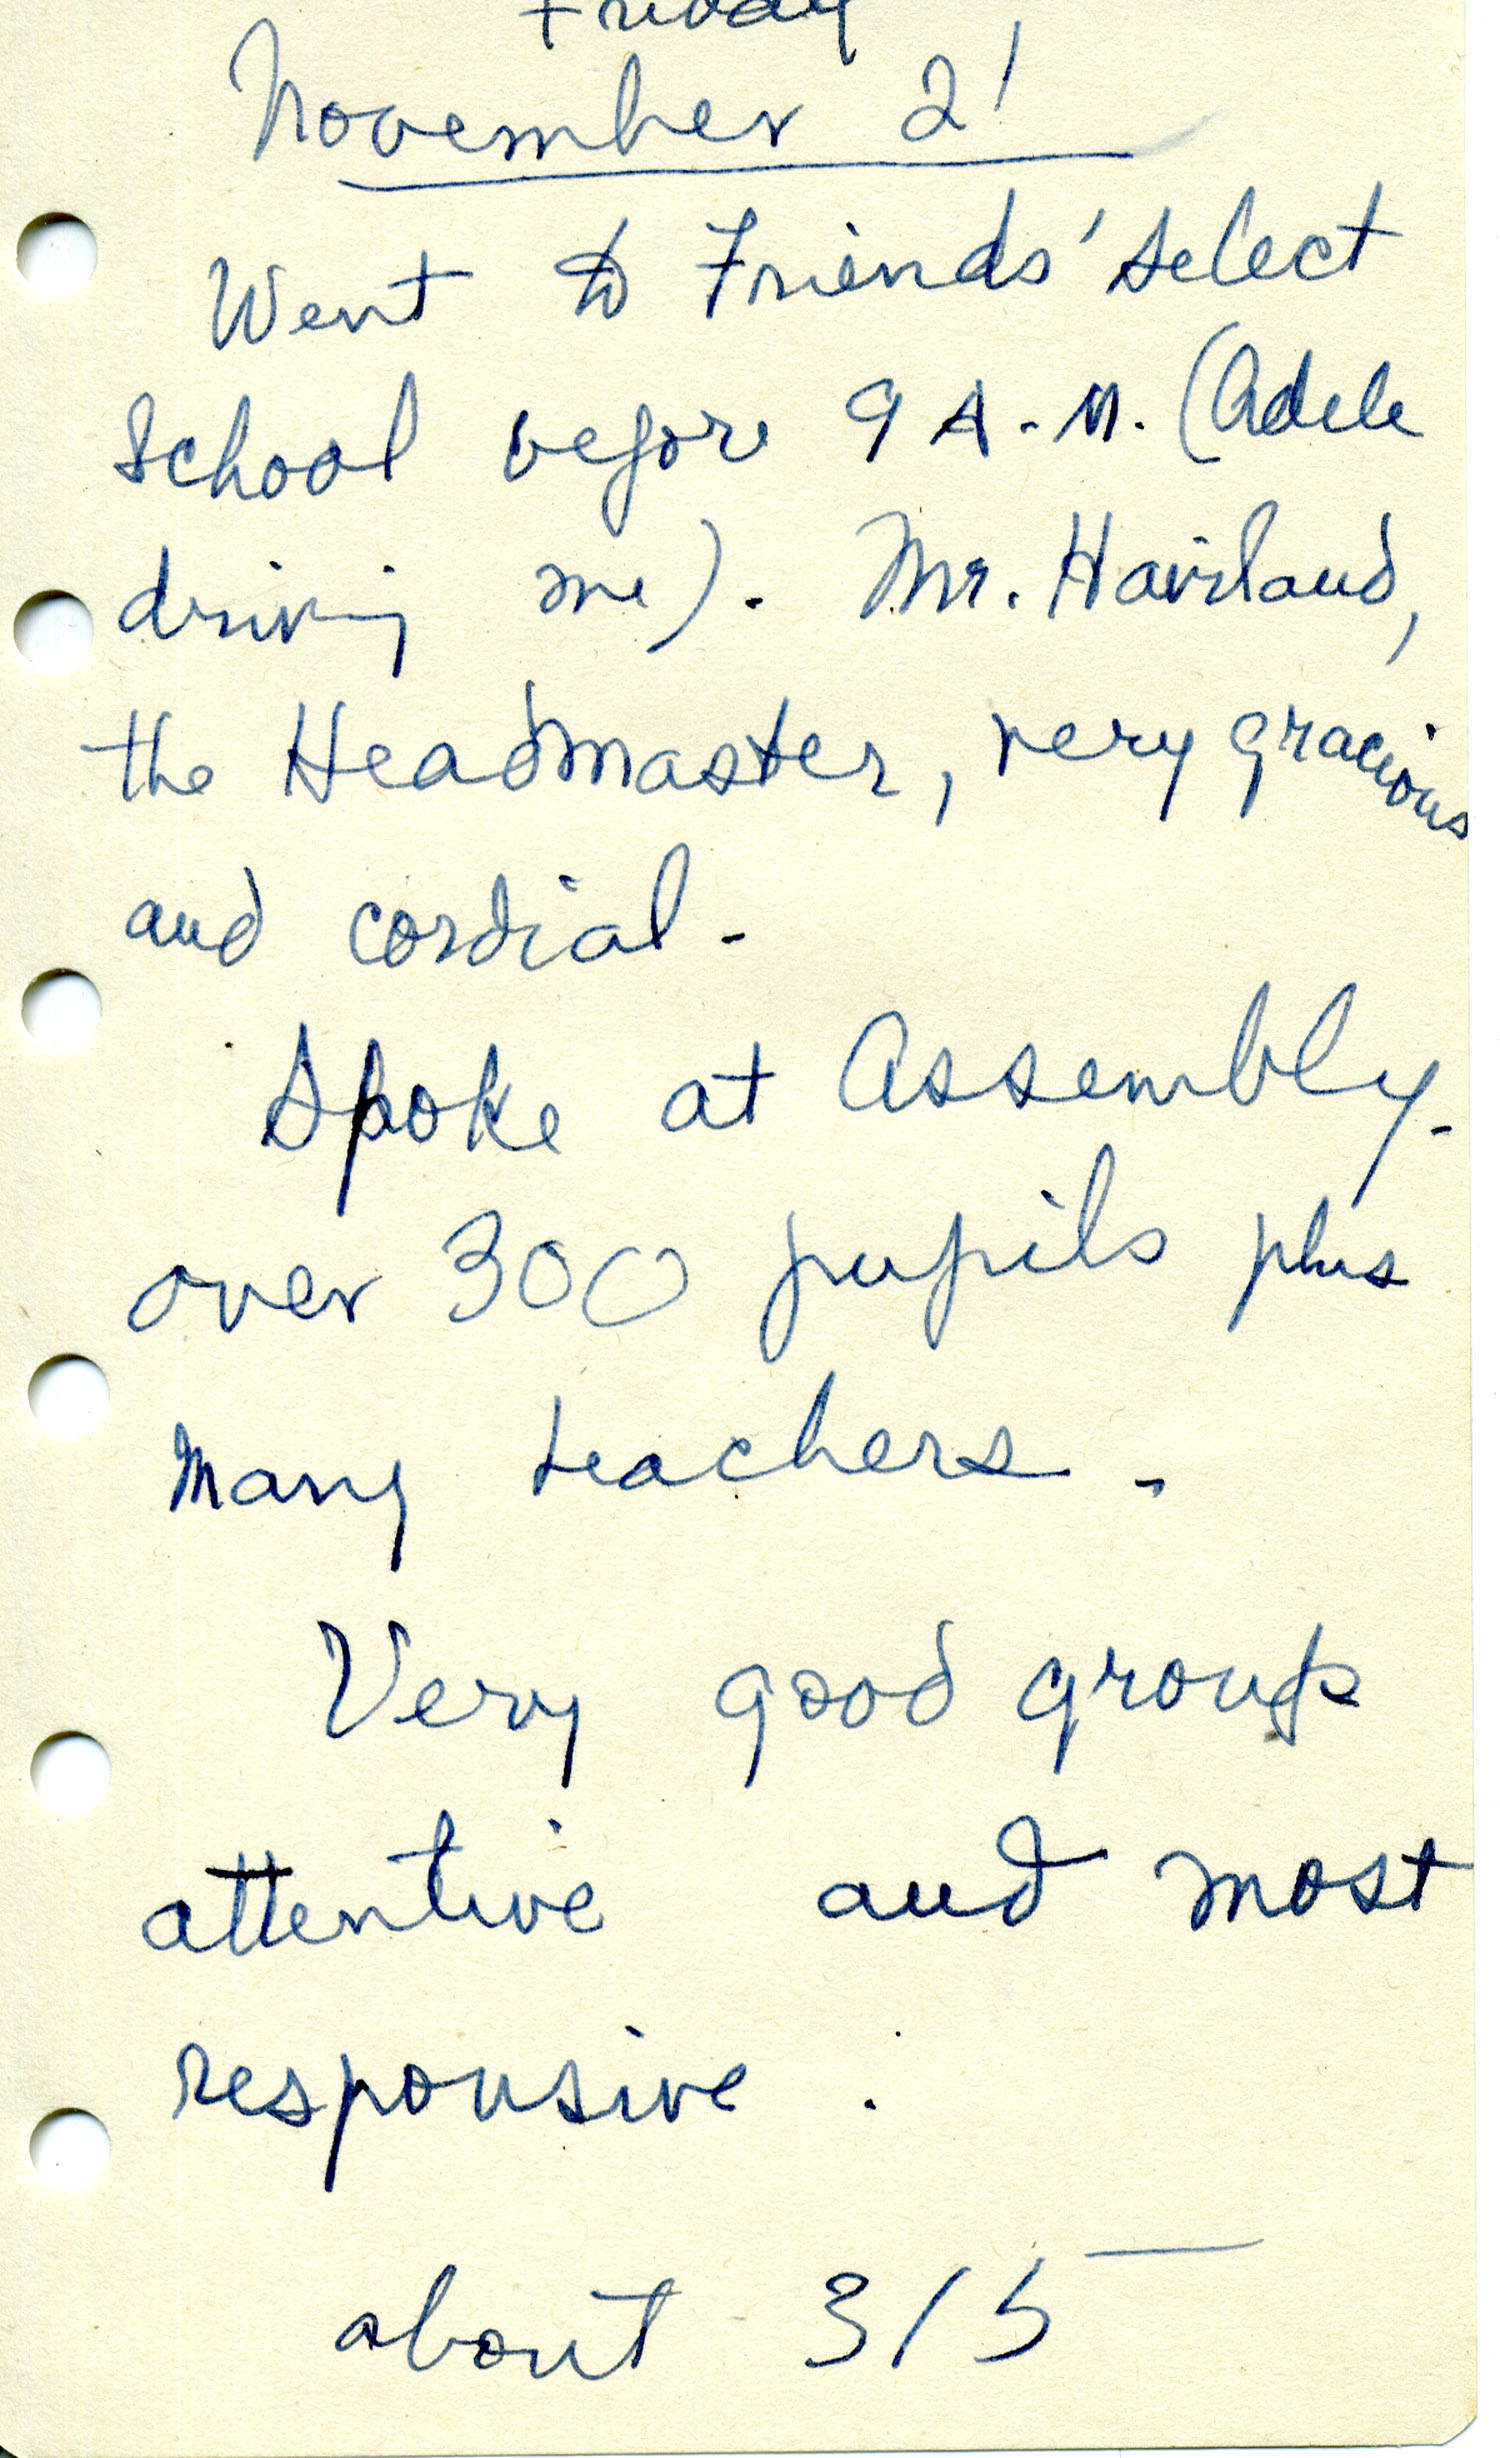 Friday
November 21
Went to Friends' Select
School before 9 A.M. (Adele
driving me). Mr. Haviland,
the Headmaster, very gracious
and cordial.
Spoke at Assembly.
over 300 pupils plus
many teachers.
Very good group
attentive and most
responsive.
about 315